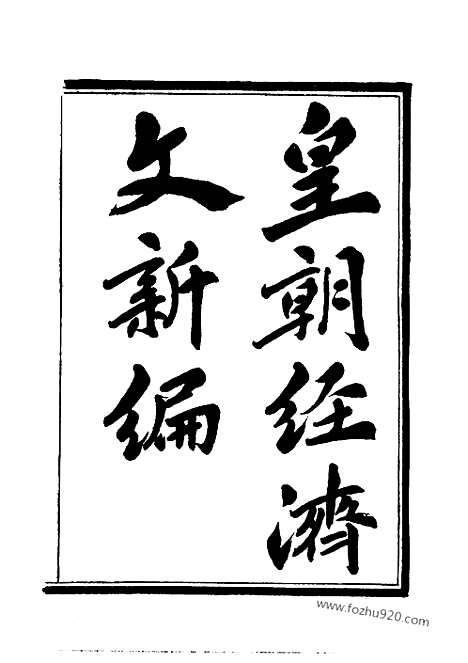 皇朝经濟
文新編
www.fozhu920.com